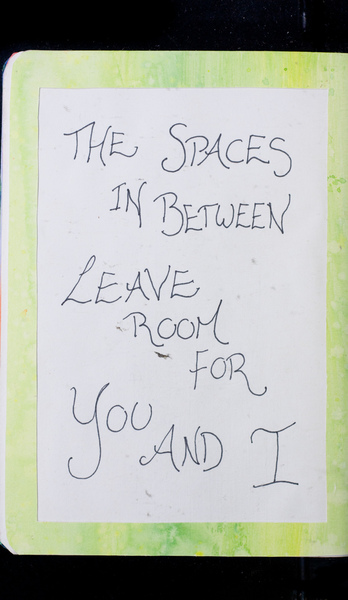 THE SPACES
IN BETWEEN
LEAVE
ROOM
FOR
YOU
AND I